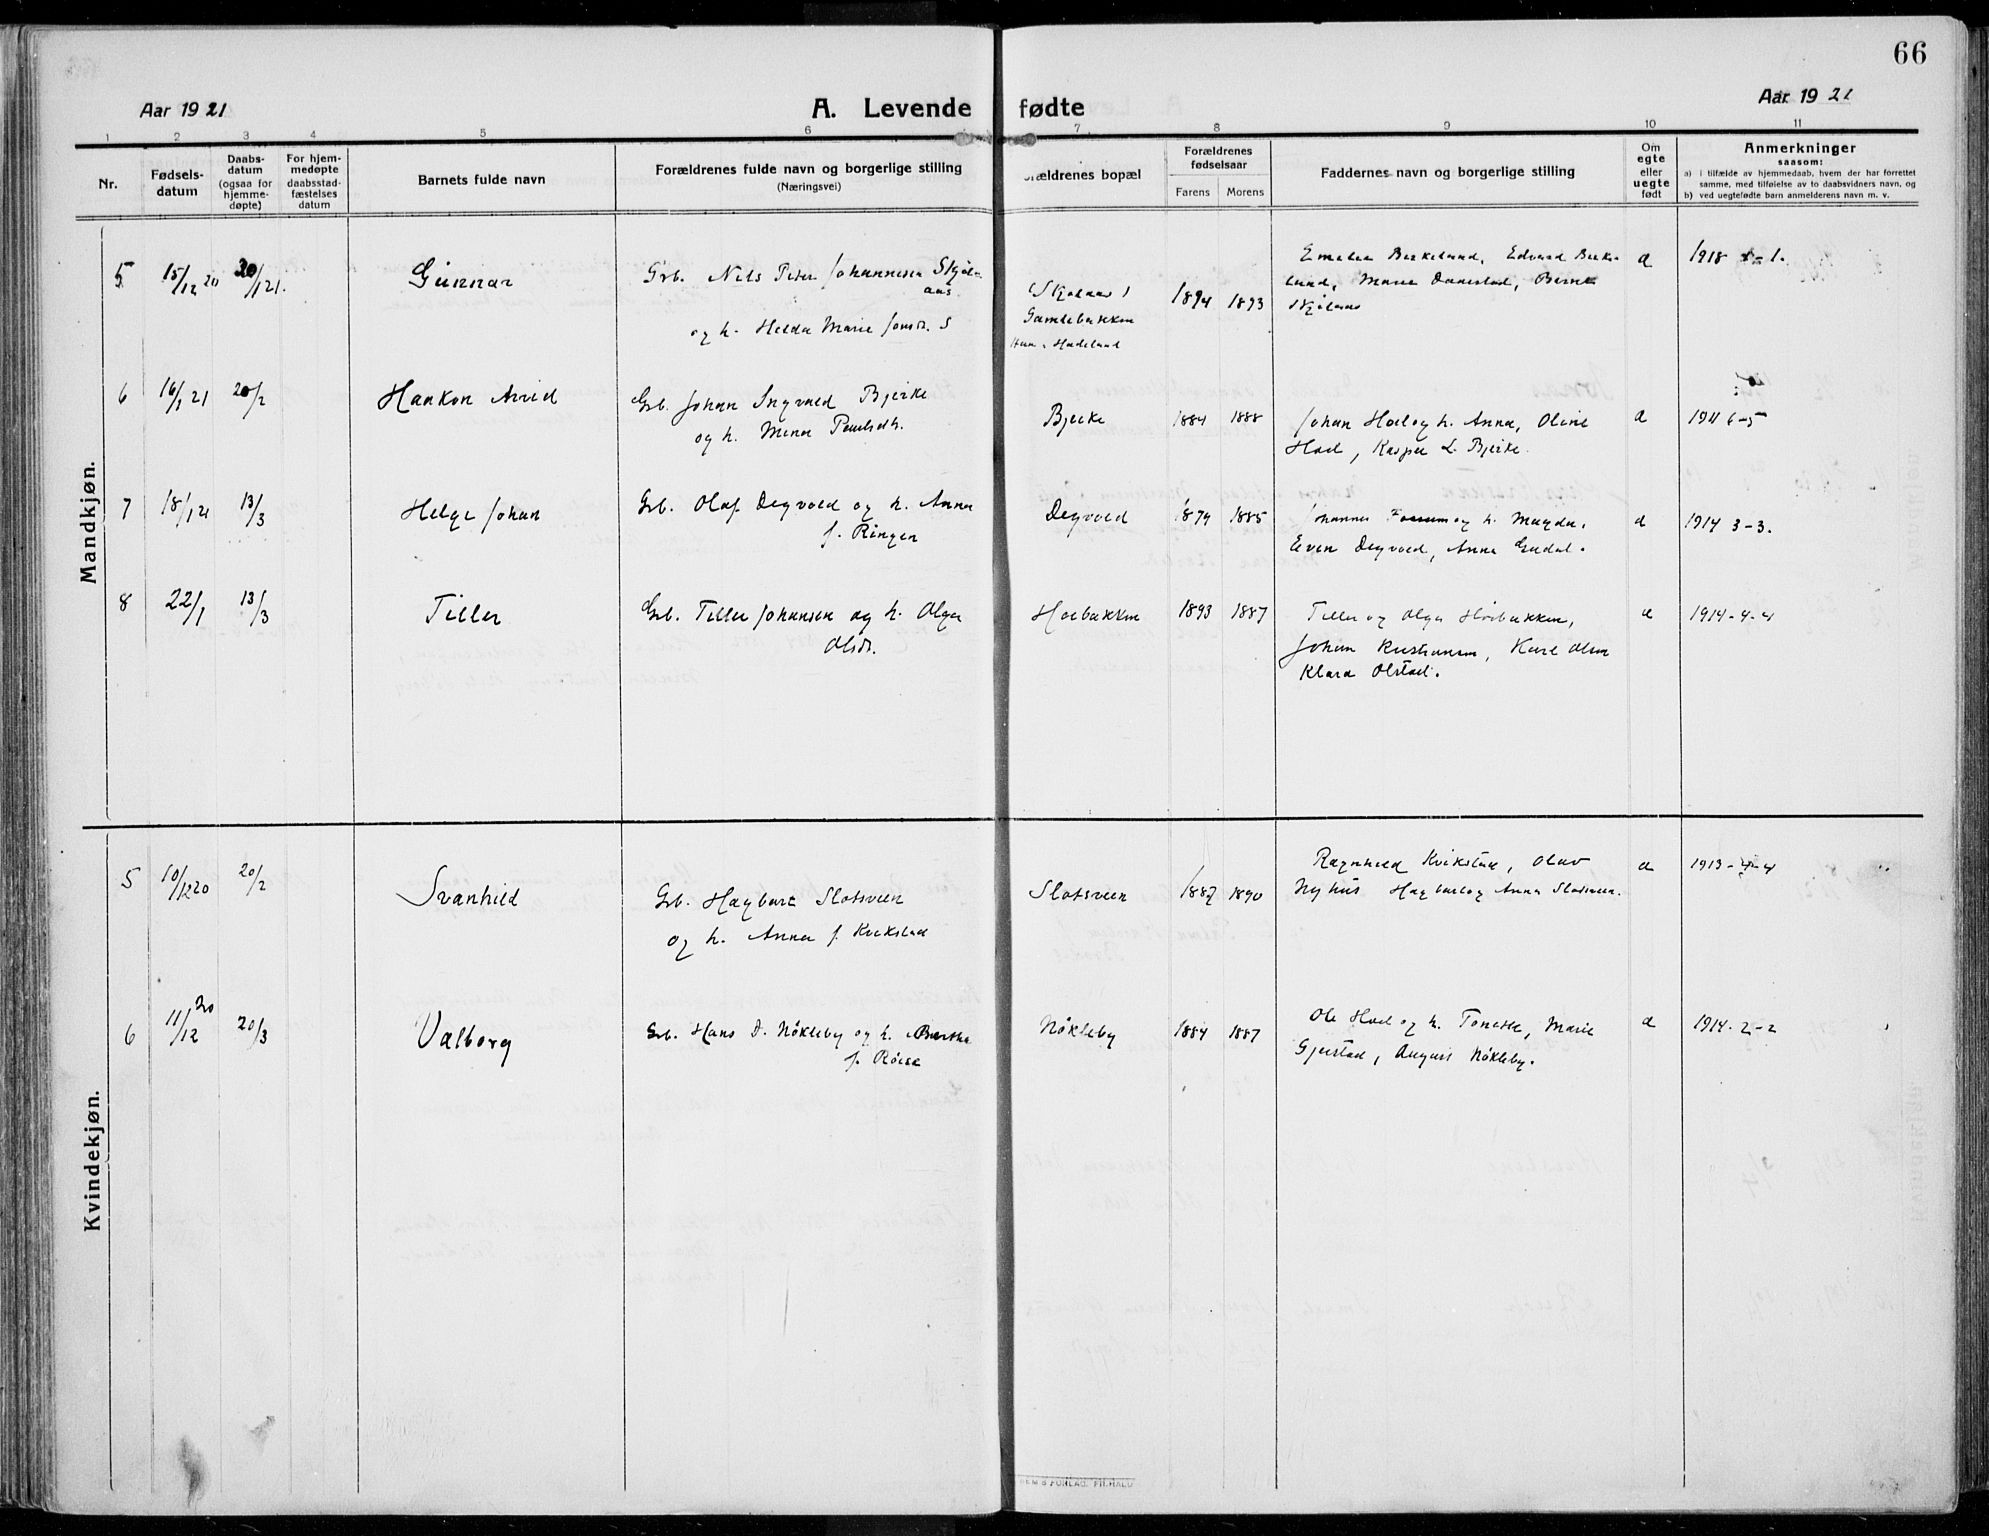 66
Aar 1921
A. Levende fødte
Aar 1921
1 2 3 4 5 6 7 8 9 10 11
Nr.
Fødsels-
datum
Daabs-
datum
(ogsaa for
hjemme-
døpte)
For hjem-
medøpte
daabsstad-
fæstelses
datum
Barnets fulde navn
Forældrenes fulde navn og borgerlige stilling
(Næringsvei)
ældrenes bopæl
Forældrenes
fødselsaar
Farens Morens
Faddernes navn og borgerlige stilling
Om
egte
eller
uegte
født
Anmerkninger
saasom:
a) i tilfælde av hjemmedaab, hvem der har forrettet
samme, med tilføielse av to daabsvidners navn, og
b) ved uegtefødte børn anmelderens navn m. v.
Mandkjøn.
5 15/12 20 /1 21. Gunnar
Grb. Nils Peter Johannesen Skjøl-
aas
og h. Helda Marie Jonsdr. S
(Skjølaas)
Gamlebakken
Hadeland
1894 1893
Emelea Birkelund, Edvard Birke-
lund, Marie Danestad, Bernt
Skjølaas
1918 1-1.
6 16/1 21 20/2 Haakon Arvid
Grb. Johan Ingvald Bjerke
og h. Mina Paulsdtr.
Bjerke 1884 1888
Johan Hoel og h. Anna, Oline
Hoel, Kasper L. Bjerke.
191 6-5
7 18/1 21 13/3 Helge Johan
Grb. Olaf Degvold og h. Anna
f. Ringen
Degvold 1879 1885
Johannes Fossum og h. Magda,
Even Degvold, Anna Gudal.
1914 3-3.
8 22/1 13/3 Tiller
Grb. Tiller Johansen og h. Olga
Olsdr.
Hoebakken 1893 1887
Tiller og Olga Høibakken,
Johan Kristiansen, Karl Olsen
Klara Olstad.
1914-4-4
Kvindekjøn.
5 10/12 20 20/2 Svanhild
Grb. Hagbart Slotsveen
og h. Anna f. Kvikstad
Slotsveen 1887 1890
Ragnhild Kvikstad, Olav
Nyhus Hagbart og Anna Slotsveen.
1913-4-4
6 11/12 20 20/3 Valborg
Grb. Hans D. Nøkleby og h. Bertha
f. Røise
Nøkleby 1884 1887
Ole Hoel og h. Tonette, Marie
Gjerstad, August Nøkleby.
1914-2-2